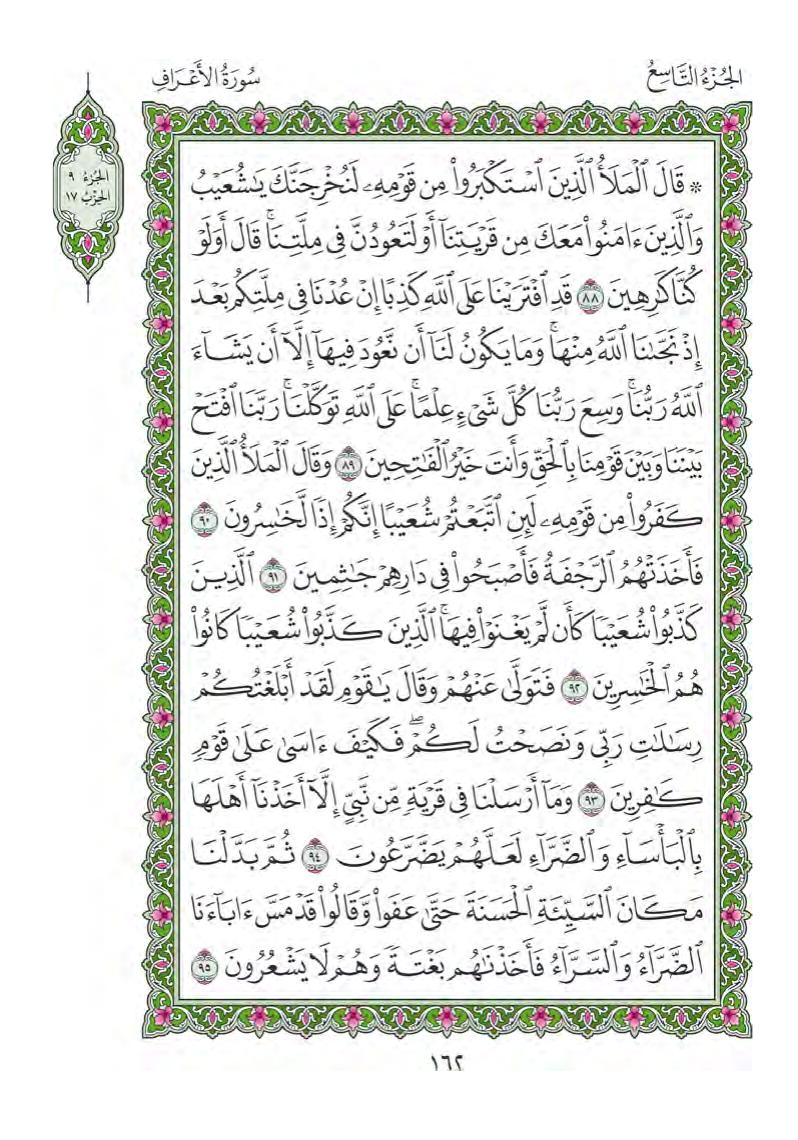 الجُزْءُ التَّاسِعُ
سُورَةُ الأَعْرَافِ
الجُزءُ ٩
الحِزْبُ ١٧
۞ قَالَ ٱلْمَلَأُ ٱلَّذِينَ ٱسْتَكْبَرُوا۟ مِن قَوْمِهِۦ لَنُخْرِجَنَّكَ يَـٰشُعَيْبُ
وَٱلَّذِينَ ءَامَنُوا۟ مَعَكَ مِن قَرْيَتِنَآ أَوْ لَتَعُودُنَّ فِى مِلَّتِنَا ۚ قَالَ أَوَلَوْ
كُنَّا كَـٰرِهِينَ ٨٨ قَدِ ٱفْتَرَيْنَا عَلَى ٱللَّهِ كَذِبًا إِنْ عُدْنَا فِى مِلَّتِكُم بَعْدَ
إِذْ نَجَّىٰنَا ٱللَّهُ مِنْهَا ۚ وَمَا يَكُونُ لَنَآ أَن نَّعُودَ فِيهَآ إِلَّآ أَن يَشَآءَ
ٱللَّهُ رَبُّنَا ۚ وَسِعَ رَبُّنَا كُلَّ شَىْءٍ عِلْمًا ۚ عَلَى ٱللَّهِ تَوَكَّلْنَا ۚ رَبَّنَا ٱفْتَحْ
بَيْنَنَا وَبَيْنَ قَوْمِنَا بِٱلْحَقِّ وَأَنتَ خَيْرُ ٱلْفَـٰتِحِينَ ٨٩ وَقَالَ ٱلْمَلَأُ ٱلَّذِينَ
كَفَرُوا۟ مِن قَوْمِهِۦ لَئِنِ ٱتَّبَعْتُمْ شُعَيْبًا إِنَّكُمْ إِذًا لَّخَـٰسِرُونَ ٩٠
فَأَخَذَتْهُمُ ٱلرَّجْفَةُ فَأَصْبَحُوا۟ فِى دَارِهِمْ جَـٰثِمِينَ ٩١ ٱلَّذِينَ
كَذَّبُوا۟ شُعَيْبًا كَأَن لَّمْ يَغْنَوْا۟ فِيهَا ۚ ٱلَّذِينَ كَذَّبُوا۟ شُعَيْبًا كَانُوا۟
هُمُ ٱلْخَـٰسِرِينَ ٩٢ فَتَوَلَّىٰ عَنْهُمْ وَقَالَ يَـٰقَوْمِ لَقَدْ أَبْلَغْتُكُمْ
رِسَـٰلَـٰتِ رَبِّى وَنَصَحْتُ لَكُمْ ۖ فَكَيْفَ ءَاسَىٰ عَلَىٰ قَوْمٍ
كَـٰفِرِينَ ٩٣ وَمَآ أَرْسَلْنَا فِى قَرْيَةٍ مِّن نَّبِىٍّ إِلَّآ أَخَذْنَآ أَهْلَهَا
بِٱلْبَأْسَآءِ وَٱلضَّرَّآءِ لَعَلَّهُمْ يَضَّرَّعُونَ ٩٤ ثُمَّ بَدَّلْنَا
مَكَانَ ٱلسَّيِّئَةِ ٱلْحَسَنَةَ حَتَّىٰ عَفَوا۟ وَّقَالُوا۟ قَدْ مَسَّ ءَابَآءَنَا
ٱلضَّرَّآءُ وَٱلسَّرَّآءُ فَأَخَذْنَـٰهُم بَغْتَةً وَهُمْ لَا يَشْعُرُونَ ٩٥
١٦٢